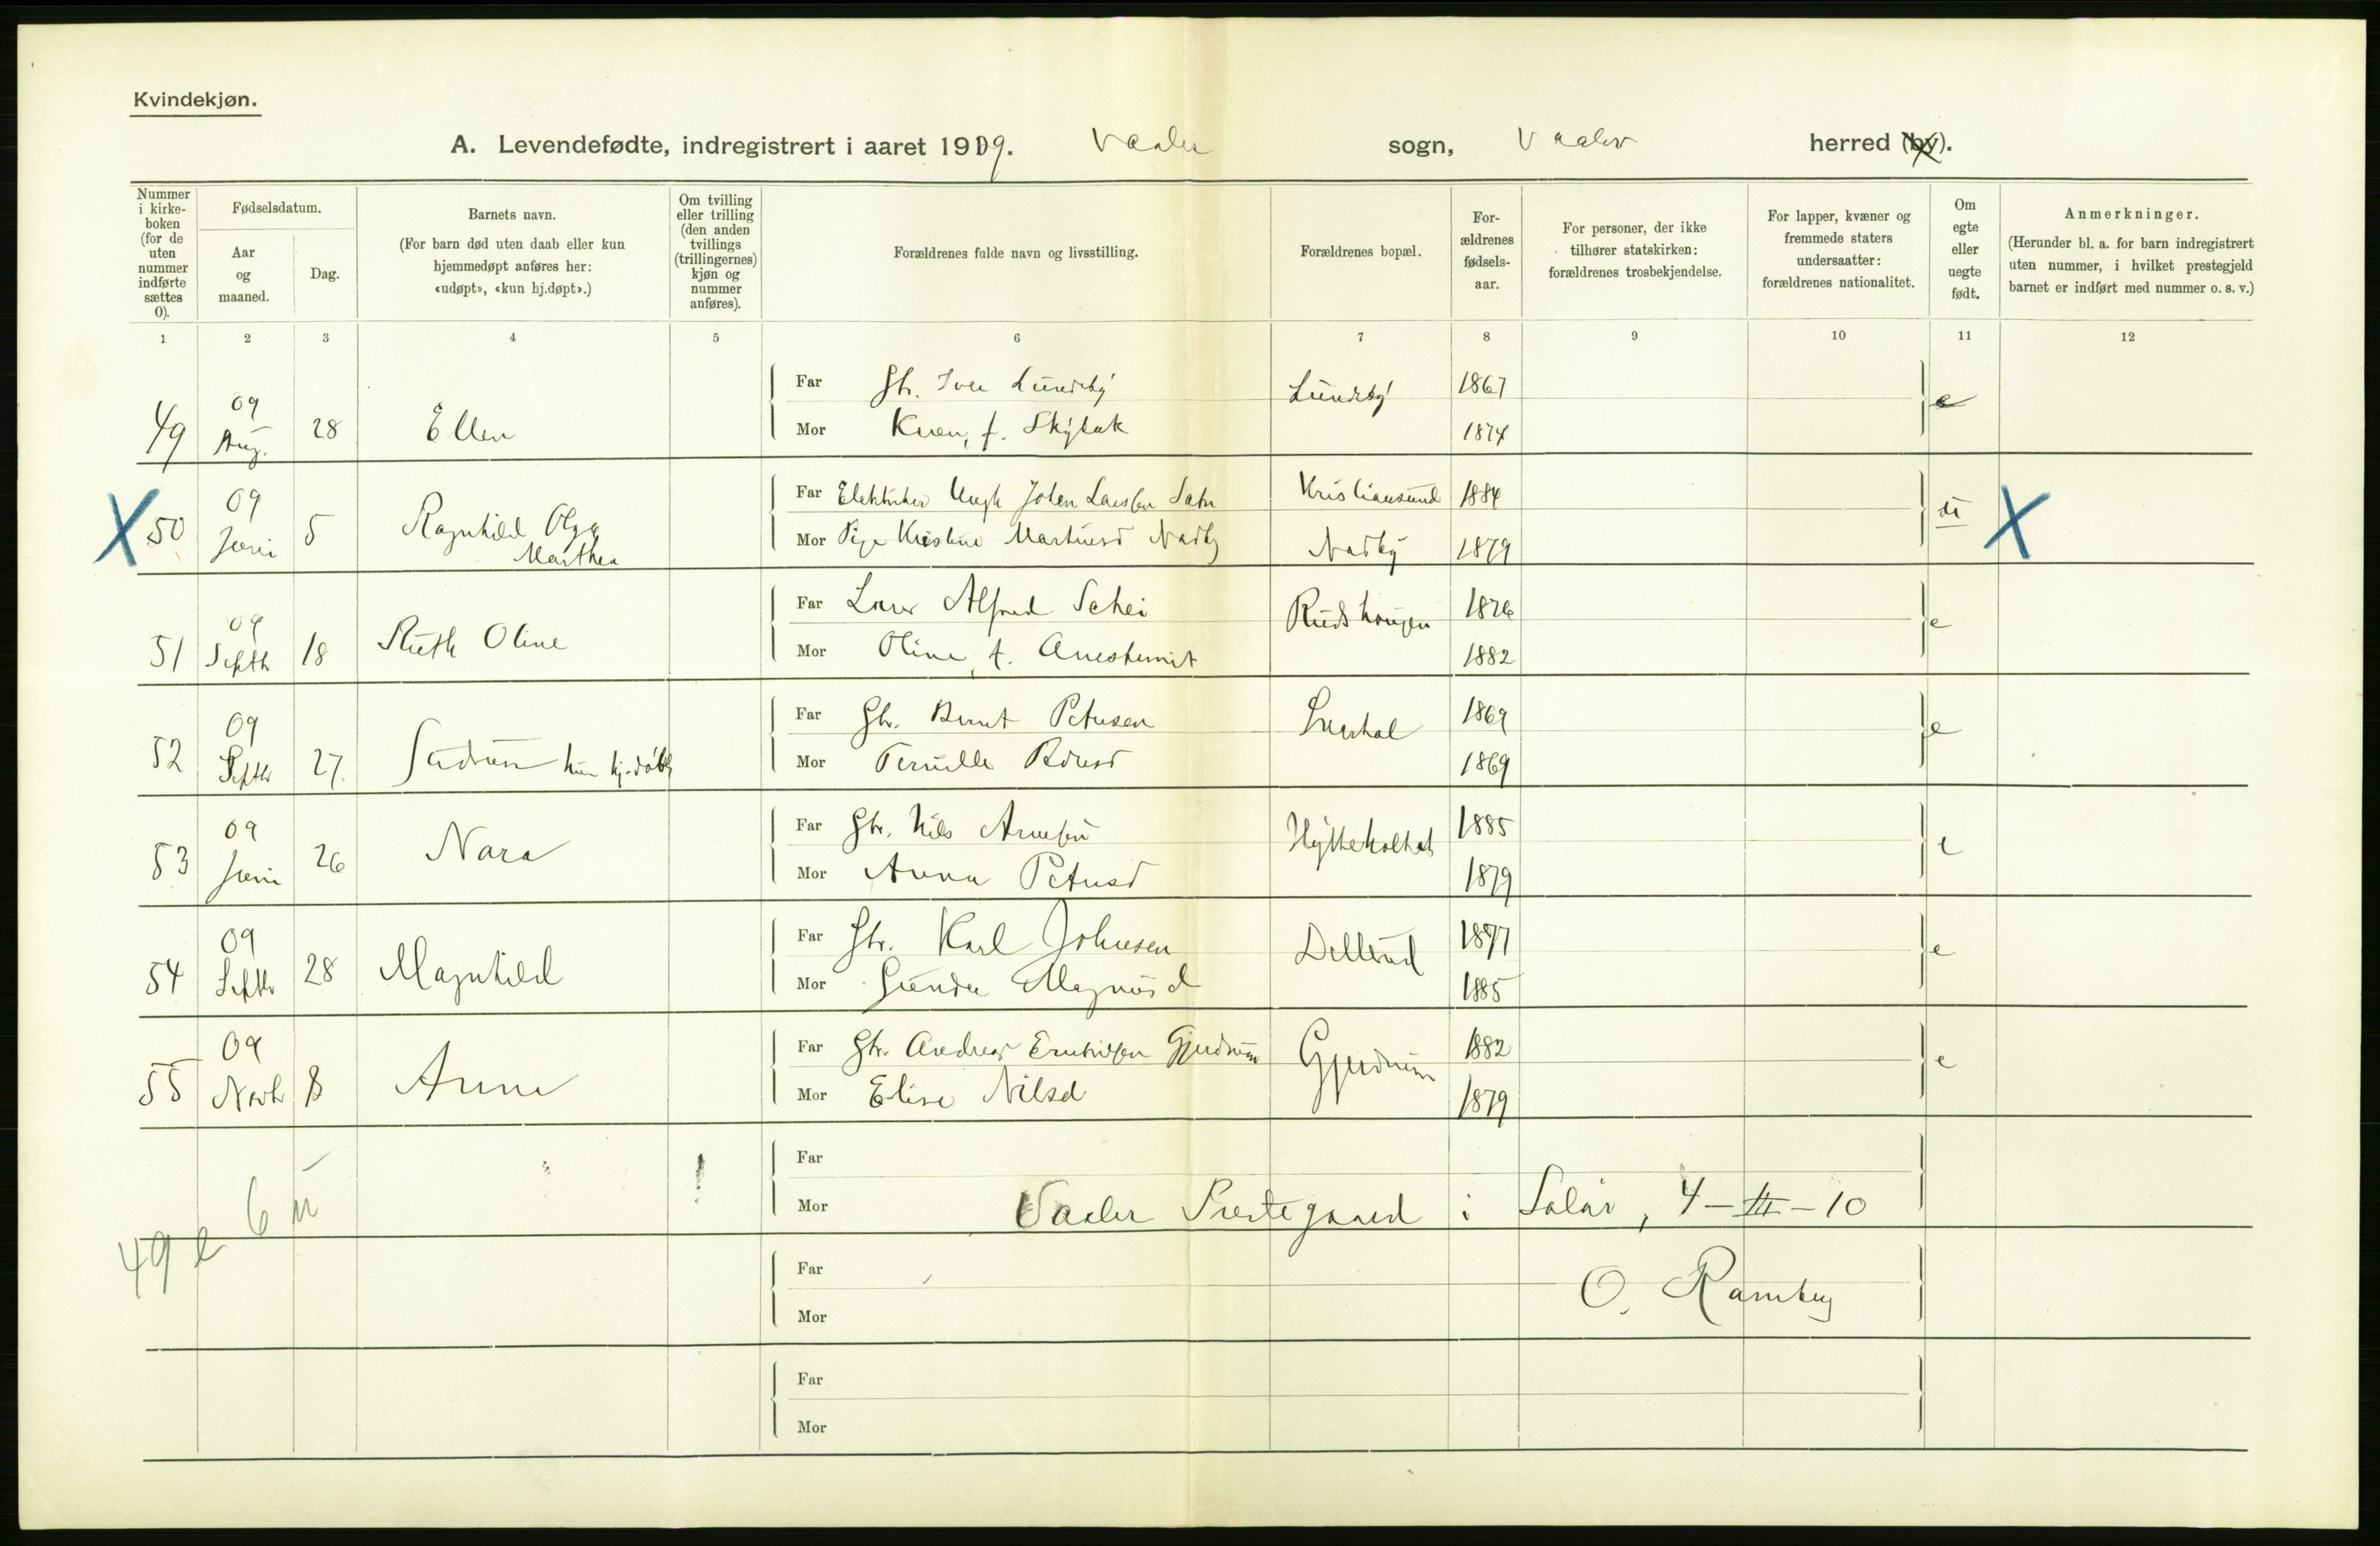 Kvindekjøn.
A. Levendefødte, indregistrert i aaret 1909. Vaaler sogn, Vaaler herred (by).
Nummer i kirke-boken (for de uten nummer indførte sættes 0).
Fødselsdatum.
Aar og maaned.
Dag.
Barnets navn.
(For barn død uten daab eller kun hjemmedøpt anføres her: «udøpt», «kun hj.døpt».)
Om tvilling eller trilling (den anden tvillings (trillingernes) kjøn og nummer anføres).
Forældrenes fulde navn og livsstilling.
Forældrenes bopæl.
For-ældrenes fødsels-aar.
For personer, der ikke tilhører statskirken: forældrenes trosbekjendelse.
For lapper, kvæner og fremmede staters undersaatter: forældrenes nationalitet.
Om egte eller uegte født.
Anmerkninger.
(Herunder bl. a. for barn indregistrert uten nummer, i hvilket prestegjeld barnet er indført med nummer o. s. v.)
1 2 3 4 5 6 7 8 9 10 11 12
Far Gbr. Iver Lundeby Lundeby 1867 e
49 09 Aug. 28 Ellen
Mor Karen, f. Skybak 1874
Far Elektriker Johan Kristiansund 1884 u
X 50 09 Juni 5 Ragnhild Olga Marthea X
Mor Pige Kristine Martinsd Nadby Nadby 1879
Far Alfred Schei Rudshaugen 1876 e
51 09 Septb 18 Ruth Oline
Mor Oline, f. 1882
Far Gbr. Bernt Petersen 1869 e
52 09 Septbr 27. kun hj.døbt
Mor Pernille 1869
Far Gbr. Nils Arnesen Hytteholtet 1885 e
53 09 Juni 26 Nora
Mor Anna Petersd 1879
Far Gbr. Karl Johnsen Dellerud 1877 e
54 09 Septbr 28 Magnhild
Mor Gunda Magnusd 1885
Far Gbr. Andreas Gjerdrum Gjerdrum 1882 e
55 09 Novbr 8 Anna
Mor Elise Nilsd 1879
Far
6 u
Mor Vaaler Prestegaard i Solør, 4-III-10
49 e
Far
O. Ramberg
Mor
Far
Mor